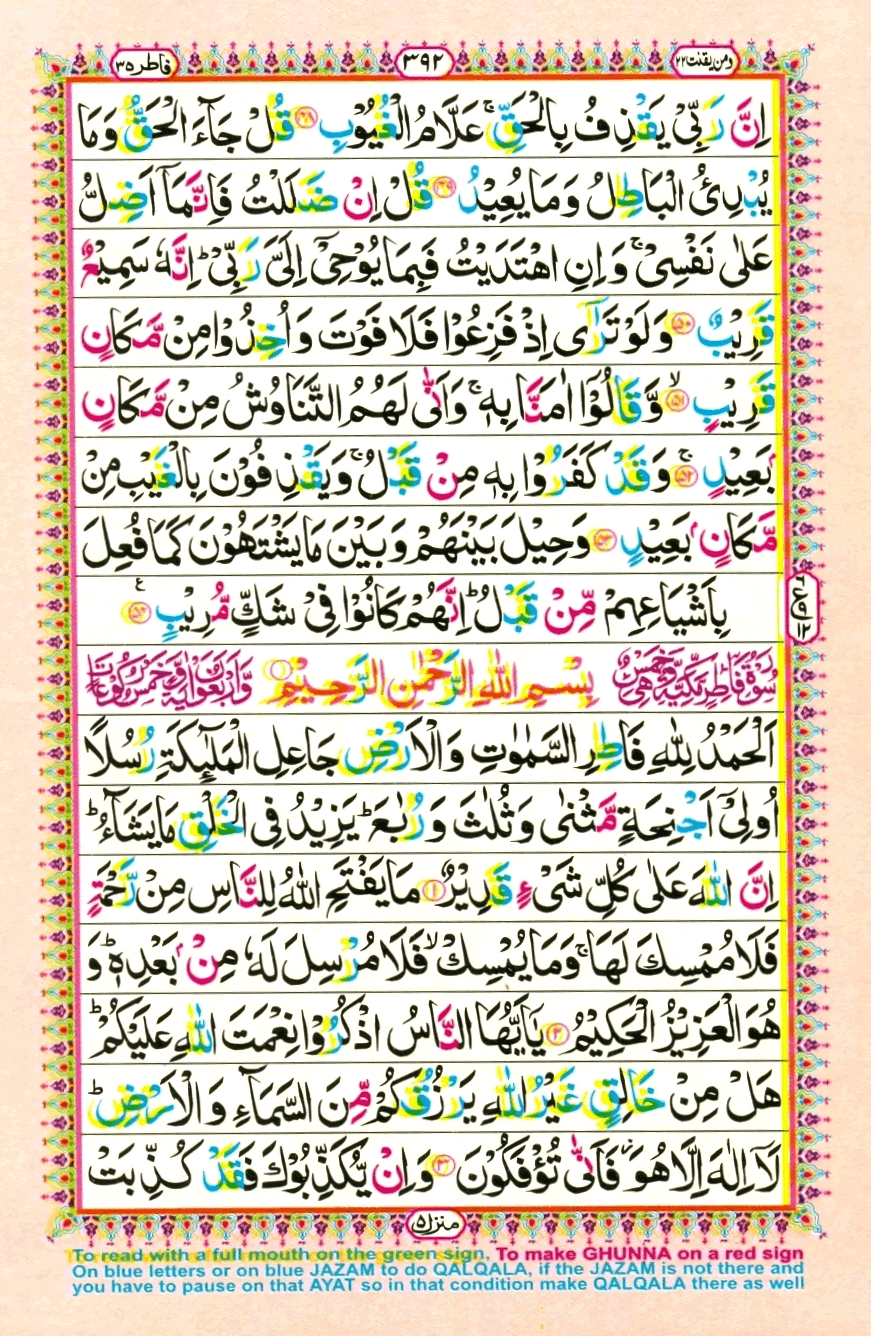 ومن یقنت ٢٢
٣٩٢
فاطر ٣٥
اِنَّ رَبِّیْ یَقْذِفُ بِالْحَقِّ ۚ عَلَّامُ الْغُیُوْبِ ﴿۴۸﴾ قُلْ جَآءَ الْحَقُّ وَمَا
یُبْدِئُ الْبَاطِلُ وَمَا یُعِیْدُ ﴿۴۹﴾ قُلْ اِنْ ضَلَلْتُ فَاِنَّمَاۤ اَضِلُّ
عَلٰی نَفْسِیْ ۚ وَاِنِ اهْتَدَیْتُ فَبِمَا یُوْحِیْۤ اِلَیَّ رَبِّیْ ؕ اِنَّهٗ سَمِیْعٌ
قَرِیْبٌ ﴿۵۰﴾ وَلَوْ تَرٰۤی اِذْ فَزِعُوْا فَلَا فَوْتَ وَاُخِذُوْا مِنْ مَّكَانٍ
قَرِیْبٍ ﴿ۙ۵۱﴾ وَّقَالُوْۤا اٰمَنَّا بِهٖ ۚ وَاَنّٰی لَهُمُ التَّنَاوُشُ مِنْ مَّكَانٍۭ
بَعِیْدٍ ﴿ۚ۵۲﴾ وَقَدْ كَفَرُوْا بِهٖ مِنْ قَبْلُ ۚ وَیَقْذِفُوْنَ بِالْغَیْبِ مِنْ
مَّكَانٍۭ بَعِیْدٍ ﴿۵۳﴾ وَحِیْلَ بَیْنَهُمْ وَبَیْنَ مَا یَشْتَهُوْنَ كَمَا فُعِلَ
بِاَشْیَاعِهِمْ مِّنْ قَبْلُ ؕ اِنَّهُمْ كَانُوْا فِیْ شَكٍّ مُّرِیْبٍ ﴿۵۴﴾ ع
سُوْرَةُ فَاطِرٍ مَّكِّیَّةٌ وَّهِیَ خَمْسٌ بِسْمِ اللّٰهِ الرَّحْمٰنِ الرَّحِیْمِ وَّاَرْبَعُوْنَ اٰیَةً وَّخَمْسُ رُكُوْعَاتٍ
اَلْحَمْدُ لِلّٰهِ فَاطِرِ السَّمٰوٰتِ وَالْاَرْضِ جَاعِلِ الْمَلٰٓئِكَةِ رُسُلًا
اُولِیْۤ اَجْنِحَةٍ مَّثْنٰی وَثُلٰثَ وَرُبٰعَ ؕ یَزِیْدُ فِی الْخَلْقِ مَا یَشَآءُ ؕ
اِنَّ اللّٰهَ عَلٰی كُلِّ شَیْءٍ قَدِیْرٌ ﴿۱﴾ مَا یَفْتَحِ اللّٰهُ لِلنَّاسِ مِنْ رَّحْمَةٍ
فَلَا مُمْسِكَ لَهَا ۚ وَمَا یُمْسِكْ ۙ فَلَا مُرْسِلَ لَهٗ مِنْۢ بَعْدِهٖ ؕ وَ
هُوَ الْعَزِیْزُ الْحَكِیْمُ ﴿۲﴾ یٰۤاَیُّهَا النَّاسُ اذْكُرُوْا نِعْمَتَ اللّٰهِ عَلَیْكُمْ ؕ
هَلْ مِنْ خَالِقٍ غَیْرُ اللّٰهِ یَرْزُقُكُمْ مِّنَ السَّمَآءِ وَالْاَرْضِ ؕ
لَاۤ اِلٰهَ اِلَّا هُوَ ۖ فَاَنّٰی تُؤْفَكُوْنَ ﴿۳﴾ وَاِنْ یُّكَذِّبُوْكَ فَقَدْ كُذِّبَتْ
منزل ٥
To read with a full mouth on the green sign, To make GHUNNA on a red sign
On blue letters or on blue JAZAM to do QALQALA, if the JAZAM is not there and
you have to pause on that AYAT so in that condition make QALQALA there as well